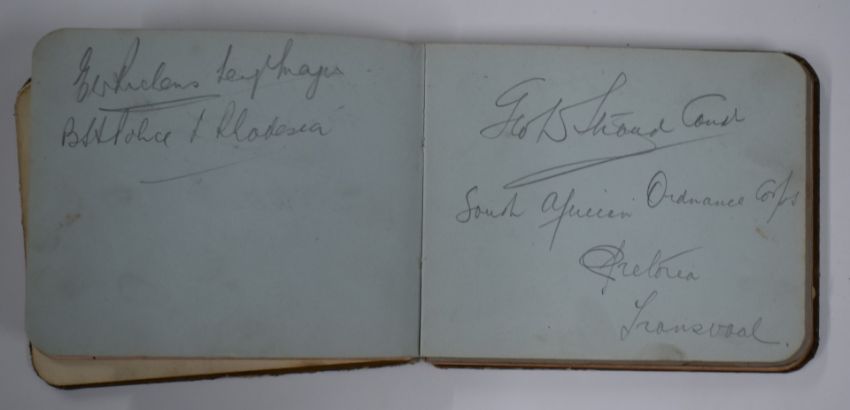 Sergt Major
BSA Police S Rhodesia
Geo D Strand Cond
South African Ordnance Corps
Pretoria
Transvaal.